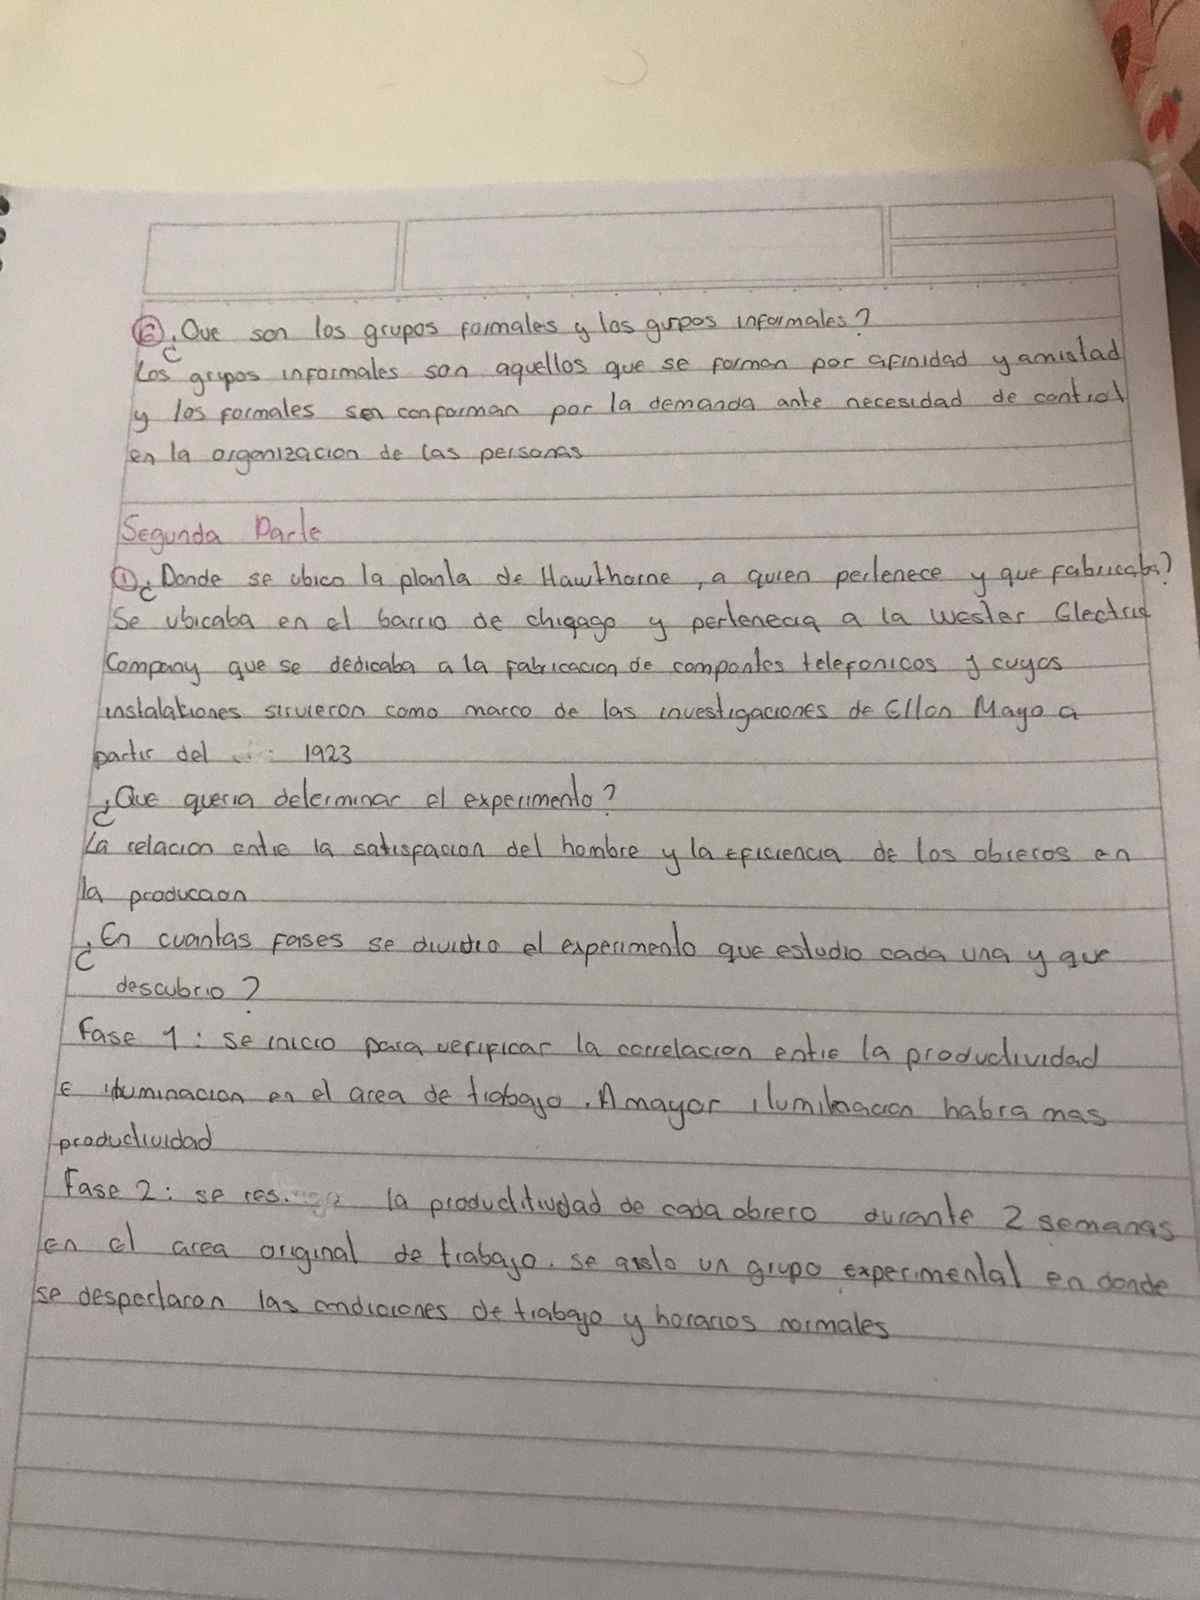 ⑥ ¿Que son los grupos formales y los gurpos informales?
Los grupos informales son aquellos que se forman por afinidad y amistad
y los formales sen conforman por la demanda ante necesidad de control
en la organizacion de las personas
Segunda Parte
① ¿Donde se ubico la planta de Hawthorne, a quien pertenece y que fabricaba?
Se ubicaba en el barrio de chigago y pertenecia a la Wester Electric
Company que se dedicaba a la fabricacion de compontes telefonicos y cuyos
instalationes sirvieron como marco de las investigaciones de Elton Mayo a
partir del 1923
¿Que queria determinar el experimento?
La relacion entre la satisfacion del hombre y la eficiencia de los obreros en
la produccion
¿En cuantas fases se dividio el experimento que estudio cada una y que
descubrio?
Fase 1: se inicio para verificar la correlacion entre la productividad
e iluminacion en el area de trabajo. A mayor ilumilnacion habra mas
productividad
Fase 2: se la productitivdad de cada obrero durante 2 semanas
en el area original de trabajo. se aislo un grupo experimental en donde
se despectaron las condiciones de trabajo y horarios normales